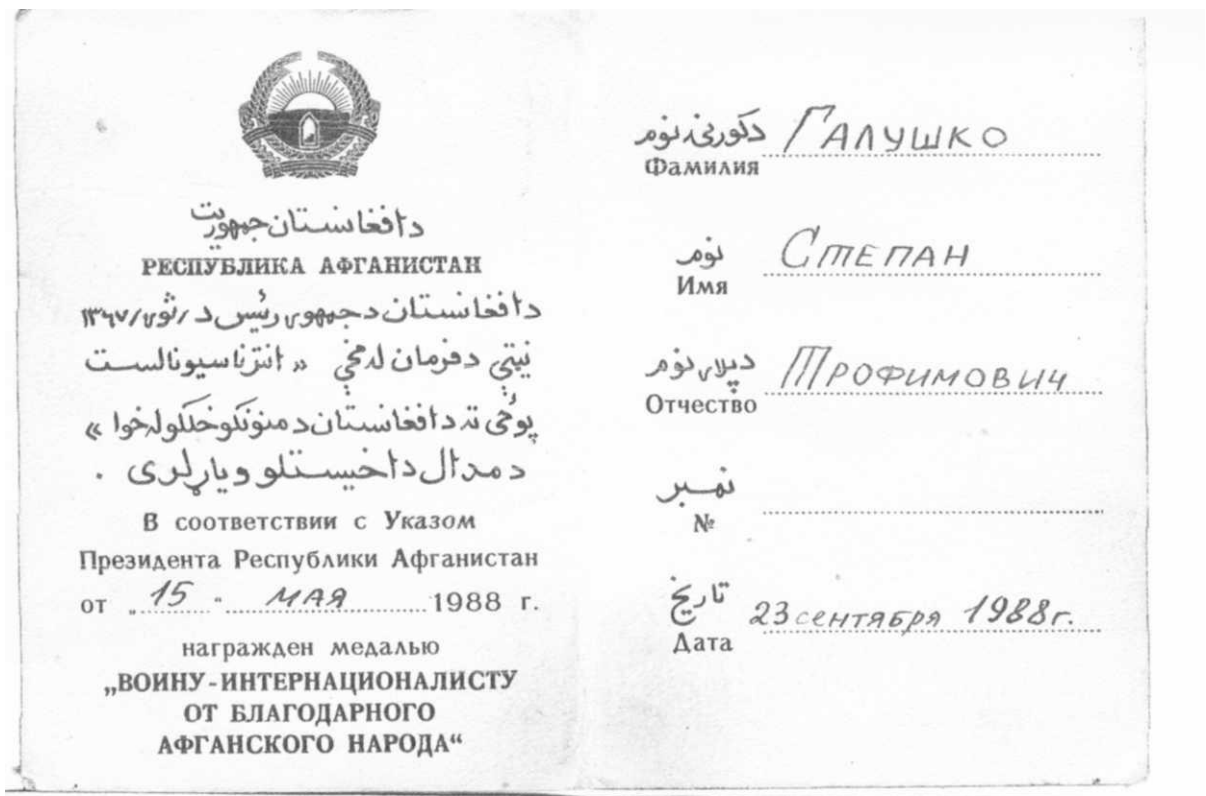 دافغانستان جمهوریت
РЕСПУБЛИКА АФГАНИСТАН
دافغانستان د جمهور رئیس د /ثور/۱۳۶۷
نیټې د فرمان له مخې « انترناسیونالست
پوځی ته د افغانستان د مننونکو خلکو له خوا »
د مدال د اخیستلو ویاړ لری .
В соответствии с Указом
Президента Республики Афганистан
от „15“ МАЯ 1988 г.
награжден медалью
„ВОИНУ-ИНТЕРНАЦИОНАЛИСТУ
ОТ БЛАГОДАРНОГО
АФГАНСКОГО НАРОДА“
دکورنۍ نوم ГАЛУШКО
Фамилия
نوم СТЕПАН
Имя
دپلار نوم ТРОФИМОВИЧ
Отчество
نمبر
№
تاریخ 23 сентября 1988г.
Дата